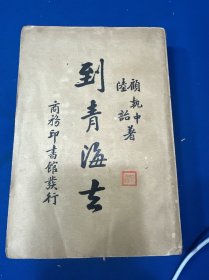 顧執中
陸詒 著
到青海去
商務印書館發行